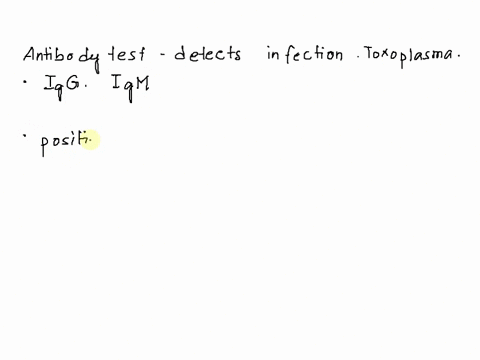 Antibody test - detects infection. Toxoplasma.
· IgG. IgM
· positi